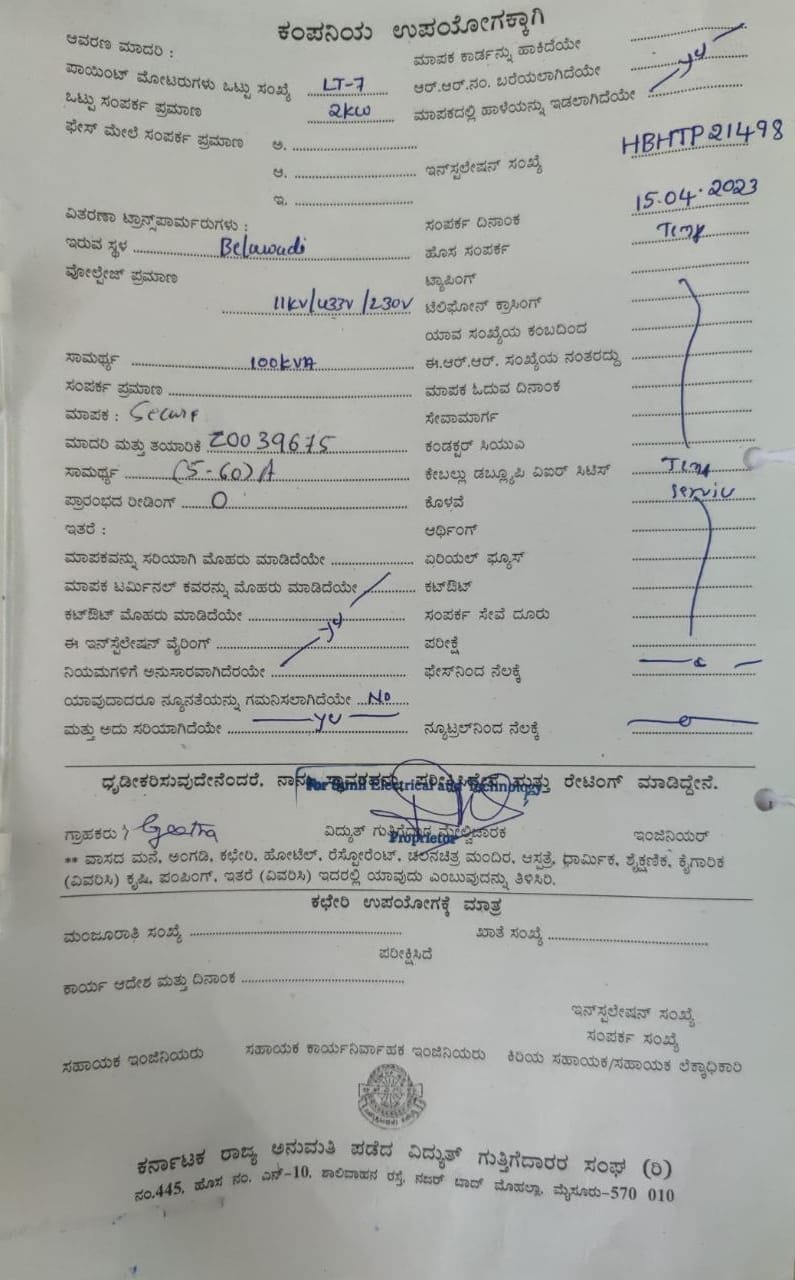 ಕಂಪನಿಯ ಉಪಯೋಗಕ್ಕಾಗಿ
ಆವರಣ ಮಾದರಿ :
ಮಾಪಕ ಕಾರ್ಡನ್ನು ಹಾಕಿದೆಯೇ
ಪಾಯಿಂಟ್ ಮೋಟರುಗಳು ಒಟ್ಟು ಸಂಖ್ಯೆ LT-7
ಆರ್.ಆರ್.ನಂ. ಬರೆಯಲಾಗಿದೆಯೇ
ಒಟ್ಟು ಸಂಪರ್ಕ ಪ್ರಮಾಣ 2kw
ಮಾಪಕದಲ್ಲಿ ಹಾಳೆಯನ್ನು ಇಡಲಾಗಿದೆಯೇ
ಫೇಸ್ ಮೇಲೆ ಸಂಪರ್ಕ ಪ್ರಮಾಣ ಅ.
ಆ. ಇನ್‌ಸ್ಟಲೇಷನ್ ಸಂಖ್ಯೆ HBHTP21498
ಇ.
ವಿತರಣಾ ಟ್ರಾನ್ಸ್‌ಫಾರ್ಮರುಗಳು : ಸಂಪರ್ಕ ದಿನಾಂಕ 15.04.2023
ಇರುವ ಸ್ಥಳ Belawadi ಹೊಸ ಸಂಪರ್ಕ Temp
ವೋಲ್ಟೇಜ್ ಪ್ರಮಾಣ ಟ್ಯಾಪಿಂಗ್
11kv/433v/230v ಟೆಲಿಫೋನ್ ಕ್ರಾಸಿಂಗ್
ಯಾವ ಸಂಖ್ಯೆಯ ಕಂಬದಿಂದ
ಸಾಮರ್ಥ್ಯ 100kVA ಈ.ಆರ್.ಆರ್. ಸಂಖ್ಯೆಯ ನಂತರದ್ದು
ಸಂಪರ್ಕ ಪ್ರಮಾಣ ಮಾಪಕ ಓದುವ ದಿನಾಂಕ
ಮಾಪಕ : Secure ಸೇವಾಮಾರ್ಗ
ಮಾದರಿ ಮತ್ತು ತಯಾರಿಕೆ Z0039675 ಕಂಡಕ್ಟರ್ ಸಿಯುಎ
ಸಾಮರ್ಥ್ಯ (5-60)A ಕೇಬಲ್ಲು ಡಬ್ಲ್ಯೂಪಿ ವಿಐಆರ್ ಸಿಟಿಸ್ Temp
ಪ್ರಾರಂಭದ ರೀಡಿಂಗ್ 0 ಕೊಳವೆ
ಇತರೆ : ಆರ್ಥಿಂಗ್
ಮಾಪಕವನ್ನು ಸರಿಯಾಗಿ ಮೊಹರು ಮಾಡಿದೆಯೇ ಏರಿಯಲ್ ಫ್ಯೂಸ್
ಮಾಪಕ ಟರ್ಮಿನಲ್ ಕವರನ್ನು ಮೊಹರು ಮಾಡಿದೆಯೇ ಕಟ್‌ಔಟ್
ಕಟ್‌ಔಟ್ ಮೊಹರು ಮಾಡಿದೆಯೇ ಸಂಪರ್ಕ ಸೇವೆ ದೂರು
ಈ ಇನ್‌ಸ್ಟಲೇಷನ್ ವೈರಿಂಗ್ ಪರೀಕ್ಷೆ
ನಿಯಮಗಳಿಗೆ ಅನುಸಾರವಾಗಿದೆರಯೇ ಫೇಸ್‌ನಿಂದ ನೆಲಕ್ಕೆ
ಯಾವುದಾದರೂ ನ್ಯೂನತೆಯನ್ನು ಗಮನಿಸಲಾಗಿದೆಯೇ No
ಮತ್ತು ಅದು ಸರಿಯಾಗಿದೆಯೇ ನ್ಯೂಟ್ರಲ್‌ನಿಂದ ನೆಲಕ್ಕೆ
ಧೃಡೀಕರಿಸುವುದೇನೆಂದರೆ, ನಾನು ಸ್ಥಾವರವನ್ನು ಪರೀಕ್ಷಿಸಿದ್ದೇನೆ ಮತ್ತು ರೇಟಿಂಗ್ ಮಾಡಿದ್ದೇನೆ.
Electrical and Technology
ಗ್ರಾಹಕರು Geetha ವಿದ್ಯುತ್ ಗುತ್ತಿಗೆದಾರ ಮೇಲ್ವಿಚಾರಕ ಇಂಜಿನಿಯರ್
Proprietor
** ವಾಸದ ಮನೆ, ಅಂಗಡಿ, ಕಛೇರಿ, ಹೋಟೆಲ್, ರೆಸ್ಟೋರೆಂಟ್, ಚಲನಚಿತ್ರ ಮಂದಿರ, ಆಸ್ಪತ್ರೆ, ಧಾರ್ಮಿಕ, ಶೈಕ್ಷಣಿಕ, ಕೈಗಾರಿಕ
(ವಿವರಿಸಿ) ಕೃಷಿ, ಪಂಪಿಂಗ್, ಇತರೆ (ವಿವರಿಸಿ) ಇದರಲ್ಲಿ ಯಾವುದು ಎಂಬುವುದನ್ನು ತಿಳಿಸಿರಿ.
ಕಛೇರಿ ಉಪಯೋಗಕ್ಕೆ ಮಾತ್ರ
ಮಂಜೂರಾತಿ ಸಂಖ್ಯೆ ಖಾತೆ ಸಂಖ್ಯೆ
ಪರೀಕ್ಷಿಸಿದೆ
ಕಾರ್ಯ ಆದೇಶ ಮತ್ತು ದಿನಾಂಕ
ಇನ್‌ಸ್ಟಲೇಷನ್ ಸಂಖ್ಯೆ
ಸಂಪರ್ಕ ಸಂಖ್ಯೆ
ಸಹಾಯಕ ಇಂಜಿನಿಯರು ಸಹಾಯಕ ಕಾರ್ಯನಿರ್ವಾಹಕ ಇಂಜಿನಿಯರು ಕಿರಿಯ ಸಹಾಯಕ/ಸಹಾಯಕ ಲೆಕ್ಕಾಧಿಕಾರಿ
ಕರ್ನಾಟಕ ರಾಜ್ಯ ಅನುಮತಿ ಪಡೆದ ವಿದ್ಯುತ್ ಗುತ್ತಿಗೆದಾರರ ಸಂಘ (ರಿ)
ನಂ.445, ಹೊಸ ನಂ. ಎನ್-10, ಶಾಲಿವಾಹನ ರಸ್ತೆ, ನಜರ್ ಬಾದ್ ಮೊಹಲ್ಲಾ, ಮೈಸೂರು-570 010